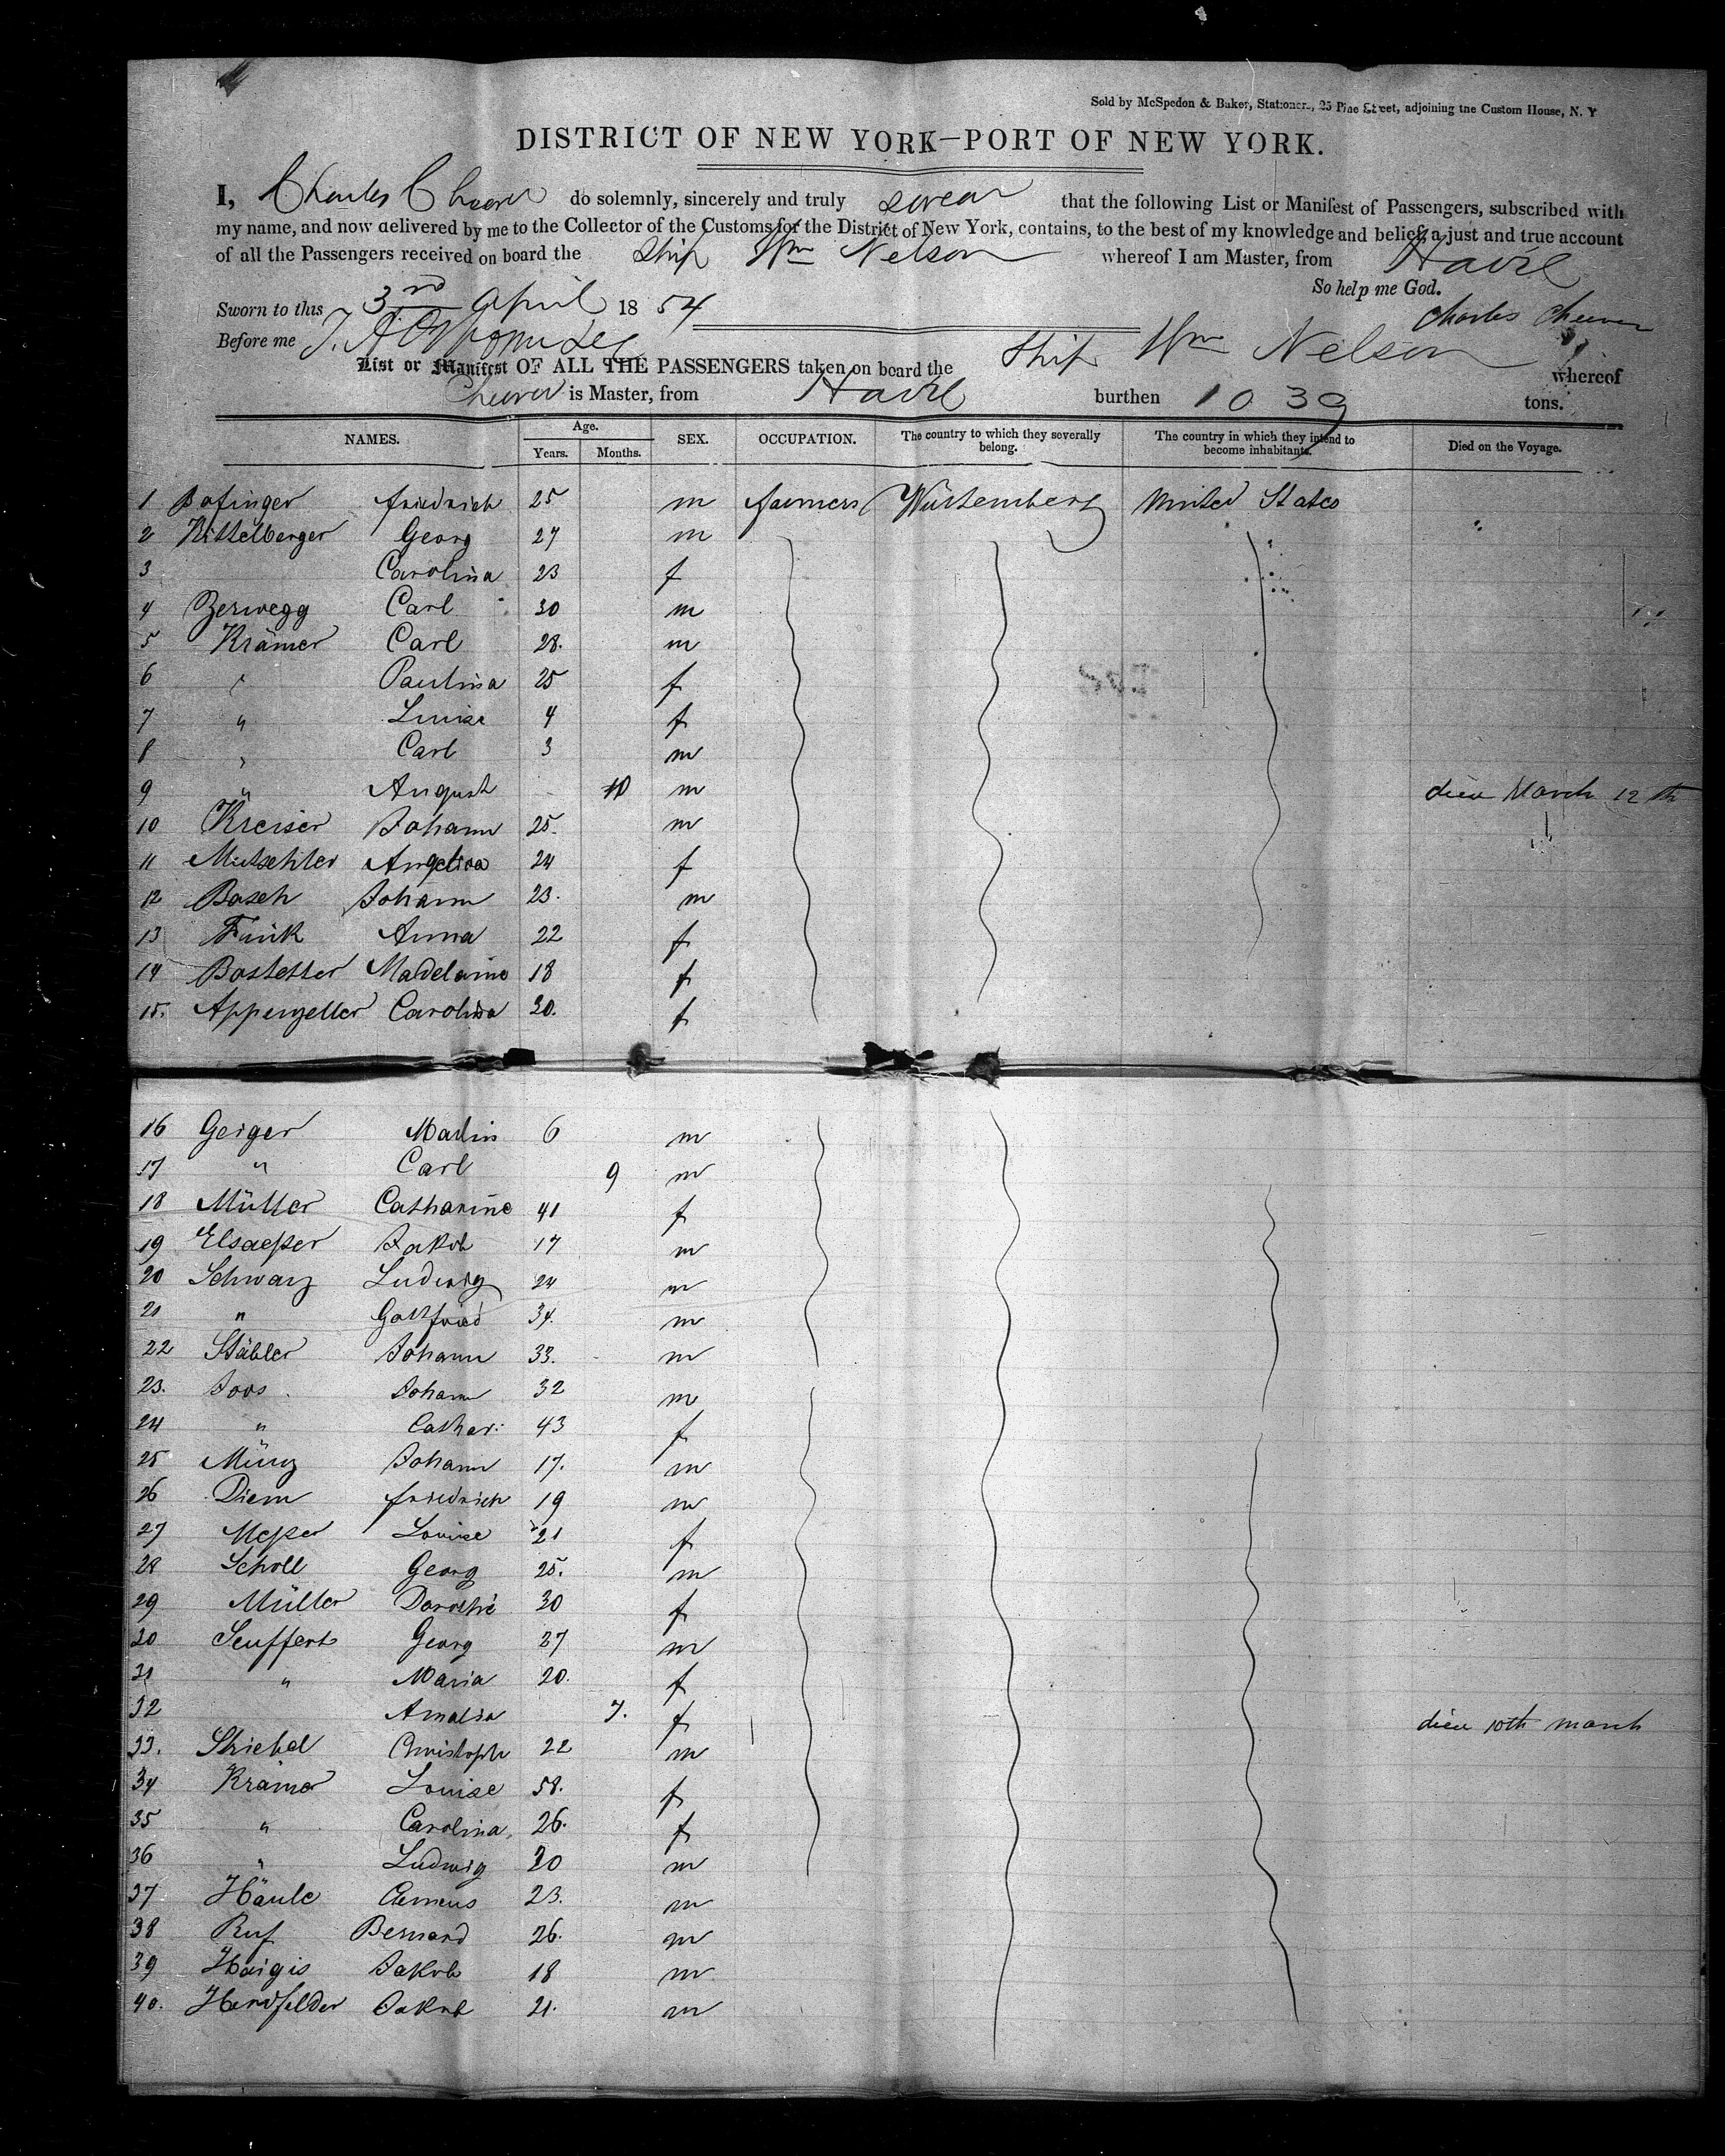 Sold by McSpedon & Baker, Stationers, 25 Pine Street, adjoining the Custom House, N. Y
DISTRICT OF NEW YORK—PORT OF NEW YORK.
I, Charles Cheever do solemnly, sincerely and truly swear that the following List or Manifest of Passengers, subscribed with
my name, and now delivered by me to the Collector of the Customs for the District of New York, contains, to the best of my knowledge and belief, a just and true account
of all the Passengers received on board the Ship Wm Nelson whereof I am Master, from Havre
So help me God.
Sworn to this 3rd April 1854
Charles Cheever
Before me
List or Manifest OF ALL THE PASSENGERS taken on board the Ship Wm Nelson whereof
Cheever is Master, from Havre burthen 1039 tons.
NAMES. Age. Years. Months. SEX. OCCUPATION. The country to which they severally belong. The country in which they intend to become inhabitants. Died on the Voyage.
1 Bofinger friedrich 25 m farmers Würtemberg United States
2 Kittelberger Georg 27 m
3 Carolina 23 f
4 Zerwegg Carl 30 m
5 Krämer Carl 28. m
6 " Paulina 25 f
7 " Luise 4 f
8 " Carl 3 m
9 " August 10 m died March 12th
10 Kreiser Johann 25. m
11 Mutschler Angelica 24 f
12 Basch Johann 23. m
13 Funk Anna 22 f
14 Bostetter Madelaine 18 f
15. Appenzeller Carolina 30. f
16 Geiger Martin 6 m
17 " Carl 9 m
18 Müller Catharine 41 f
19 Elsaeßer Jakob 17 m
20 Schwarz Ludwig 24 m
21 " Gottfried 34. m
22 Stäbler Johann 33. m
23. Joos. Johann 32 m
24 " Cathar: 43 f
25 Münz Johann 17. m
26 Diem friedrich 19 m
27 Meßer Louise 21 f
28 Scholl Georg 25. m
29 Müller Dorothé 30 f
30 Seuffert Georg 27 m
31 " Maria 20. f
32 Amalia 7. f died 10th march
33. Striebel Christoph 22 m
34 Krämer Louise 58. f
35 " Carolina 26. f
36 " Ludwig 20 m
37 Häule Clemens 23. m
38 Ruf Bernard 26. m
39 Haigis Jakob 18 m
40. Herdfelder Jakob 21. m